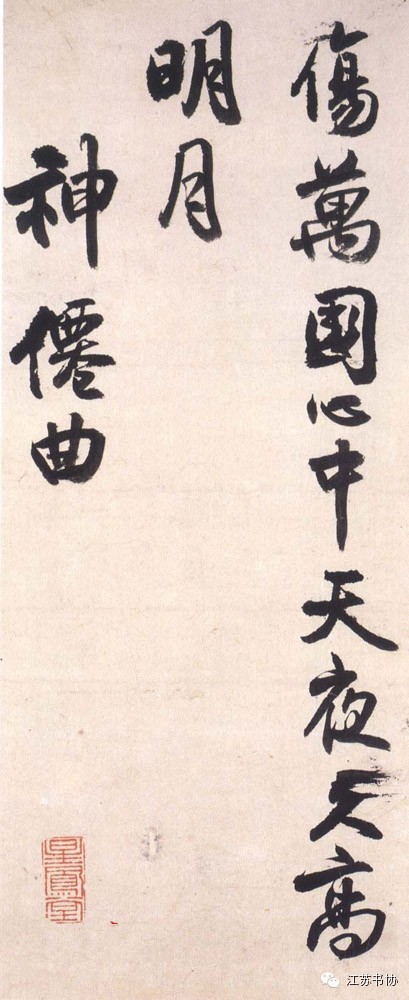 傷萬國心中天夜久高
明月
神僊曲
星鳳堂
江苏书协